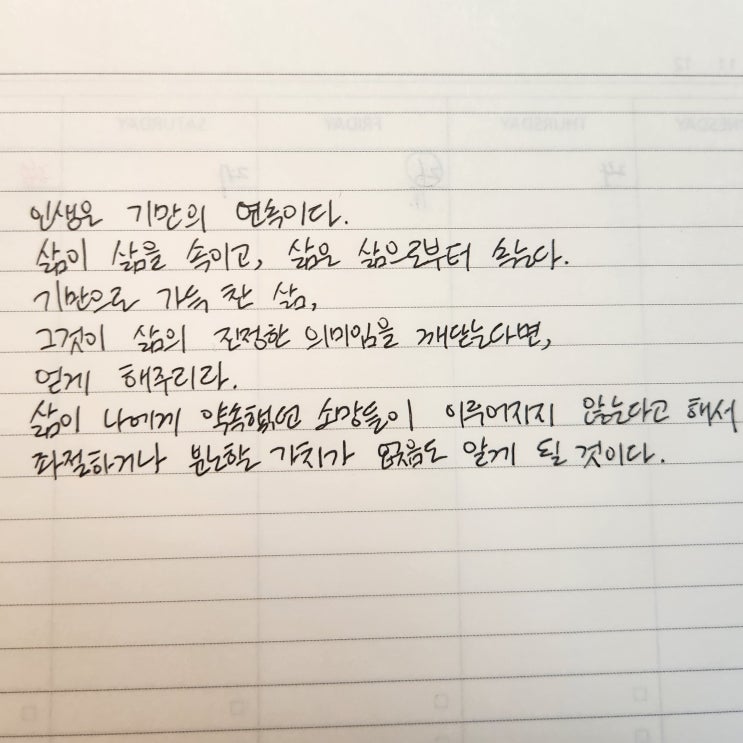 인생은 기만의 연속이다.
삶이 삶을 속이고, 삶은 삶으로부터 속는다.
기만으로 가득 찬 삶,
그것이 삶의 진정한 의미임을 깨닫는다면,
얻게 해주리라.
삶이 나에게 약속했던 소망들이 이루어지지 않는다고 해서
좌절하거나 분노할 가치가 없음도 알게 될 것이다.